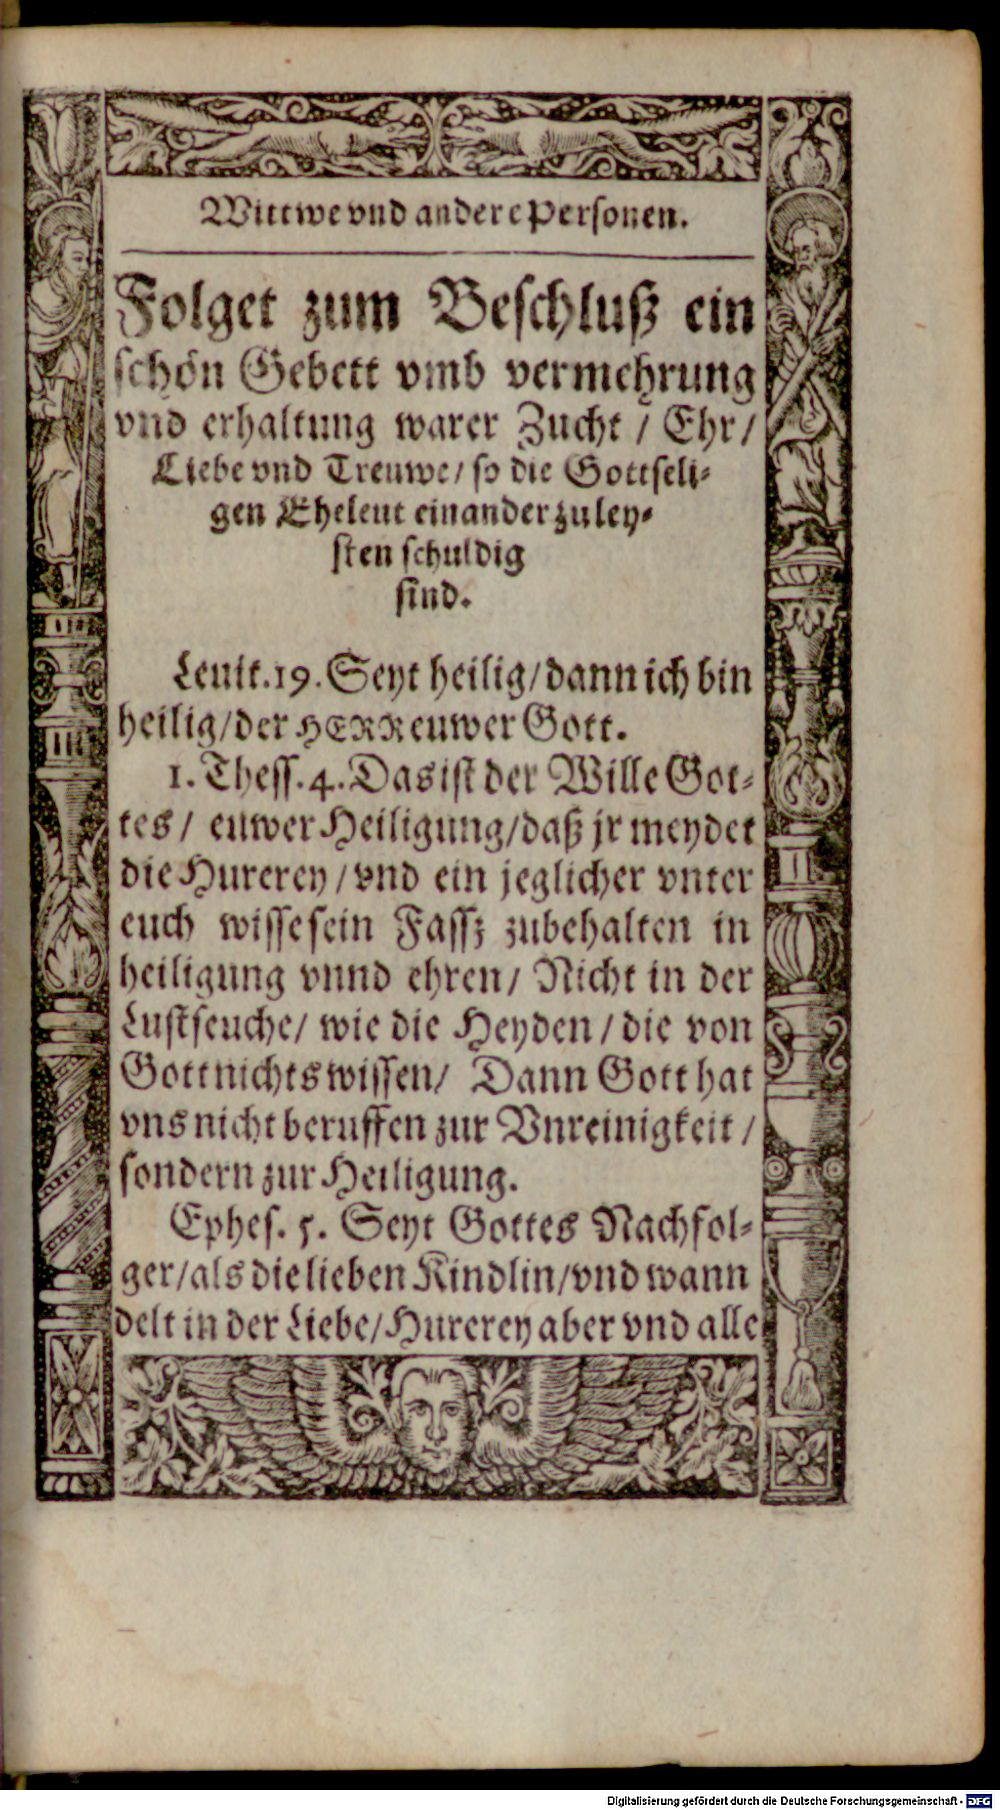 Wittwe vnd andere Personen.
Folget zum Beschluß ein
schön Gebett vmb vermehrung
vnd erhaltung warer Zucht / Ehr /
Liebe vnd Treuwe / so die Gottseli-
gen Eheleut einander zu ley-
sten schuldig
sind.
Leuit. 19. Seyt heilig / dann ich bin
heilig / der HERR euwer Gott.
1. Thess. 4. Das ist der Wille Got-
tes / euwer Heiligung / daß jr meydet
die Hurerey / vnd ein jeglicher vnter
euch wisse sein Fassz zubehalten in
heiligung vnnd ehren / Nicht in der
Lustseuche / wie die Heyden / die von
Gott nichts wissen / Dann Gott hat
vns nicht beruffen zur Vnreinigkeit /
sondern zur Heiligung.
Ephes. 5. Seyt Gottes Nachfol-
ger / als die lieben Kindlin / vnd wann
delt in der Liebe / Hurerey aber vnd alle
Digitalisierung gefördert durch die Deutsche Forschungsgemeinschaft - DFG